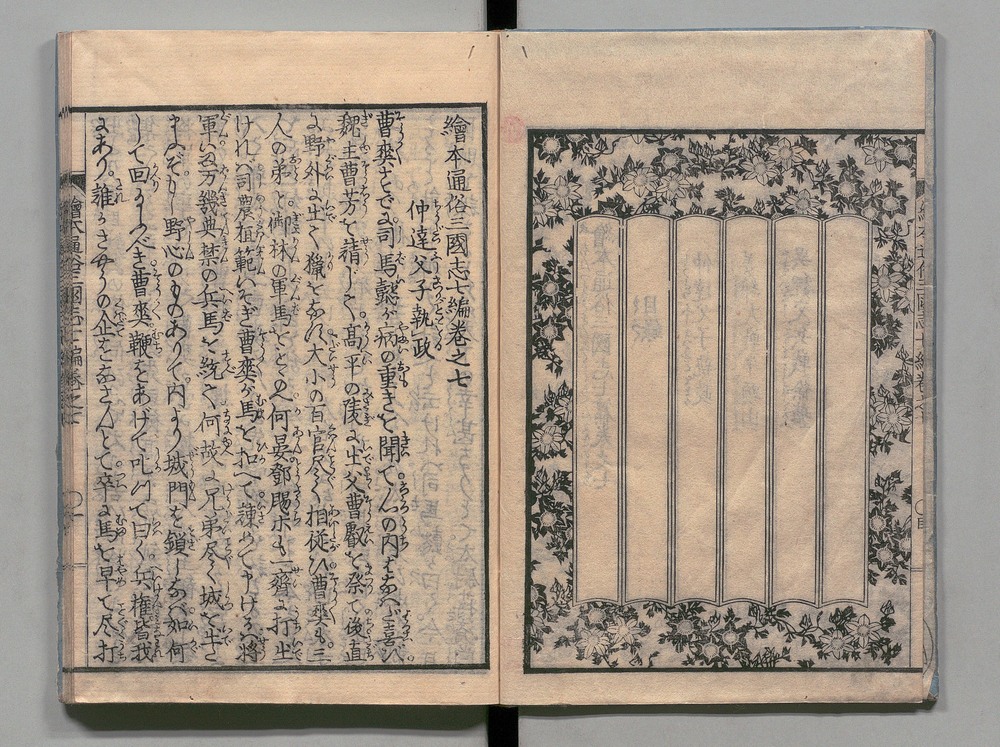 繪本通俗三國志七編巻之七
仲達父子執政
曹爽すでに司馬懿が病の重きを聞て心の内はなはだ喜び
魏主曹芳を請じて高平の陵に出父曹叡を祭て後直
に野外に出て獵をなすに大小の百官尽く相従ひ曹爽も三
人の弟と御林の軍馬をとゝのへ何晏鄧颺ホも一齊に打出
ければ司農桓範いそぎ曹爽が馬を扣へて諫めて申けるは将
軍は万機典禁の兵馬を統て何故に兄弟尽く城を出
野心のものありて内より城門を鎖しなば如何
して回るべき曹爽鞭をあげて叱つて曰く兵権皆我
にあり誰かさやうの企をなさんとて卒に馬を早て尽打